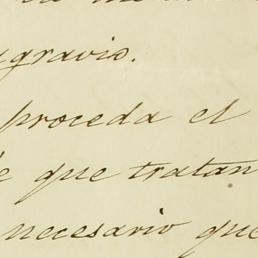 agravio.
proceda el
que tratan
necesario que